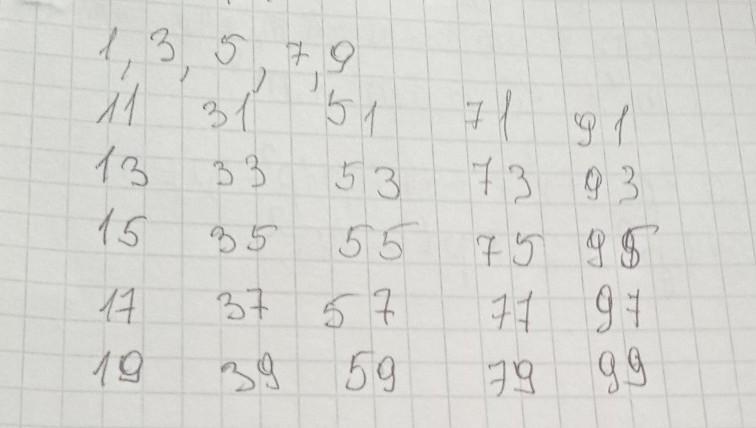 1, 3, 5, 7, 9
11 31 51 71 91
13 33 53 73 93
15 35 55 75 95
17 37 57 77 97
19 39 59 79 99